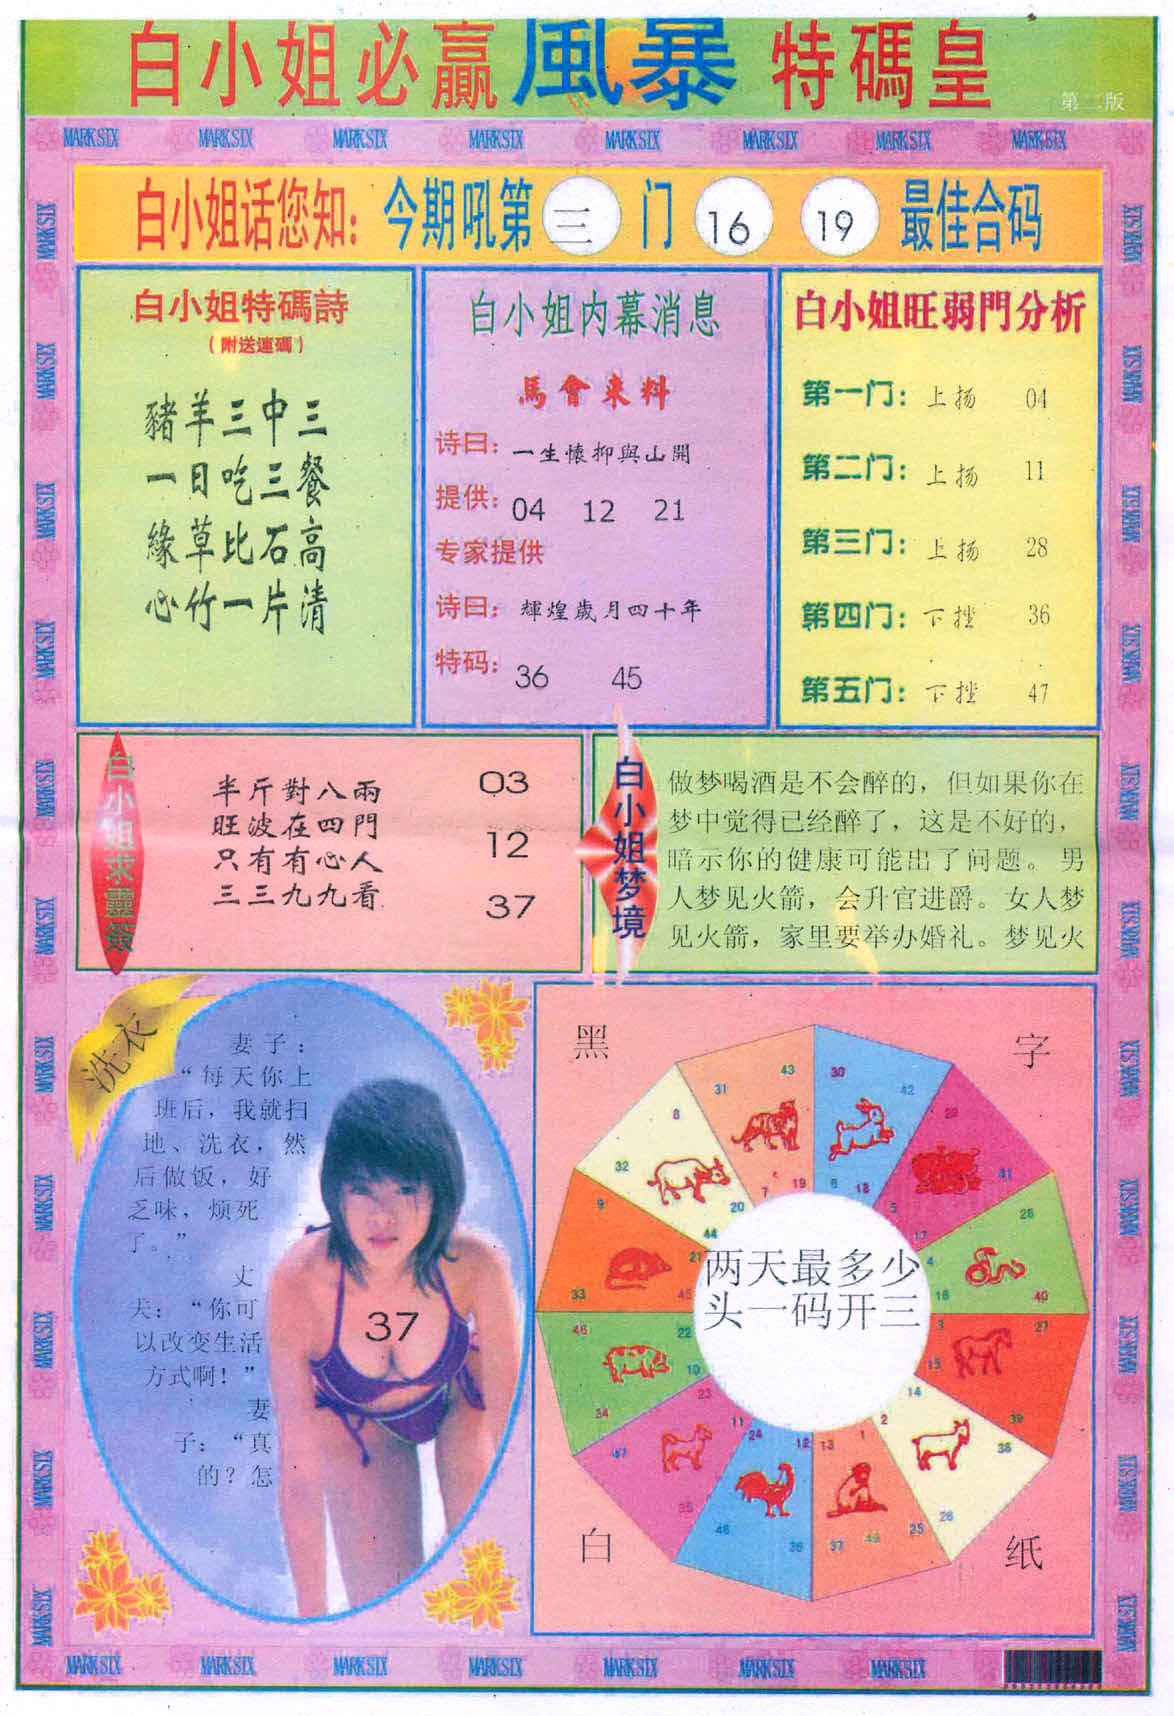 白小姐必贏風暴特碼皇
第二版
MARK SIX MARK SIX MARK SIX MARK SIX MARK SIX MARK SIX MARK SIX MARK SIX
白小姐话您知：今期吼第三门 16 19 最佳合码
白小姐特碼詩
（附送連碼）
豬羊三中三
一日吃三餐
緣草比石高
心竹一片清
白小姐内幕消息
馬會來料
诗曰：一生懐抑與山開
提供：04 12 21
专家提供
诗曰：輝煌歲月四十年
特码：36 45
白小姐旺弱門分析
第一门：上扬 04
第二门：上扬 11
第三门：上扬 28
第四门：下挫 36
第五门：下挫 47
白小姐求靈簽
半斤對八兩 03
旺波在四門
只有有心人 12
三三九九看 37
白小姐梦境
做梦喝酒是不会醉的，但如果你在
梦中觉得已经醉了，这是不好的，
暗示你的健康可能出了问题。男
人梦见火箭，会升官进爵。女人梦
见火箭，家里要举办婚礼。梦见火
洗衣
妻子：
“每天你上
班后，我就扫
地、洗衣，然
后做饭，好
乏味，烦死
了。”
丈
夫：“你可
以改变生活
方式啊！”
妻
子：“真
的？怎
37
黑 字
43 31 7 19
30 42 6 18
29 41 5 17
28 40 4 16
27 39 3 15
38 26 2 14
1 13 25 37 49
12 24 36 48
11 23 35 47
46 34 22 10
9 21 33 45
8 20 32 44
两天最多少
头一码开三
白 纸
MARK SIX MARK SIX MARK SIX MARK SIX MARK SIX MARK SIX MARK SIX